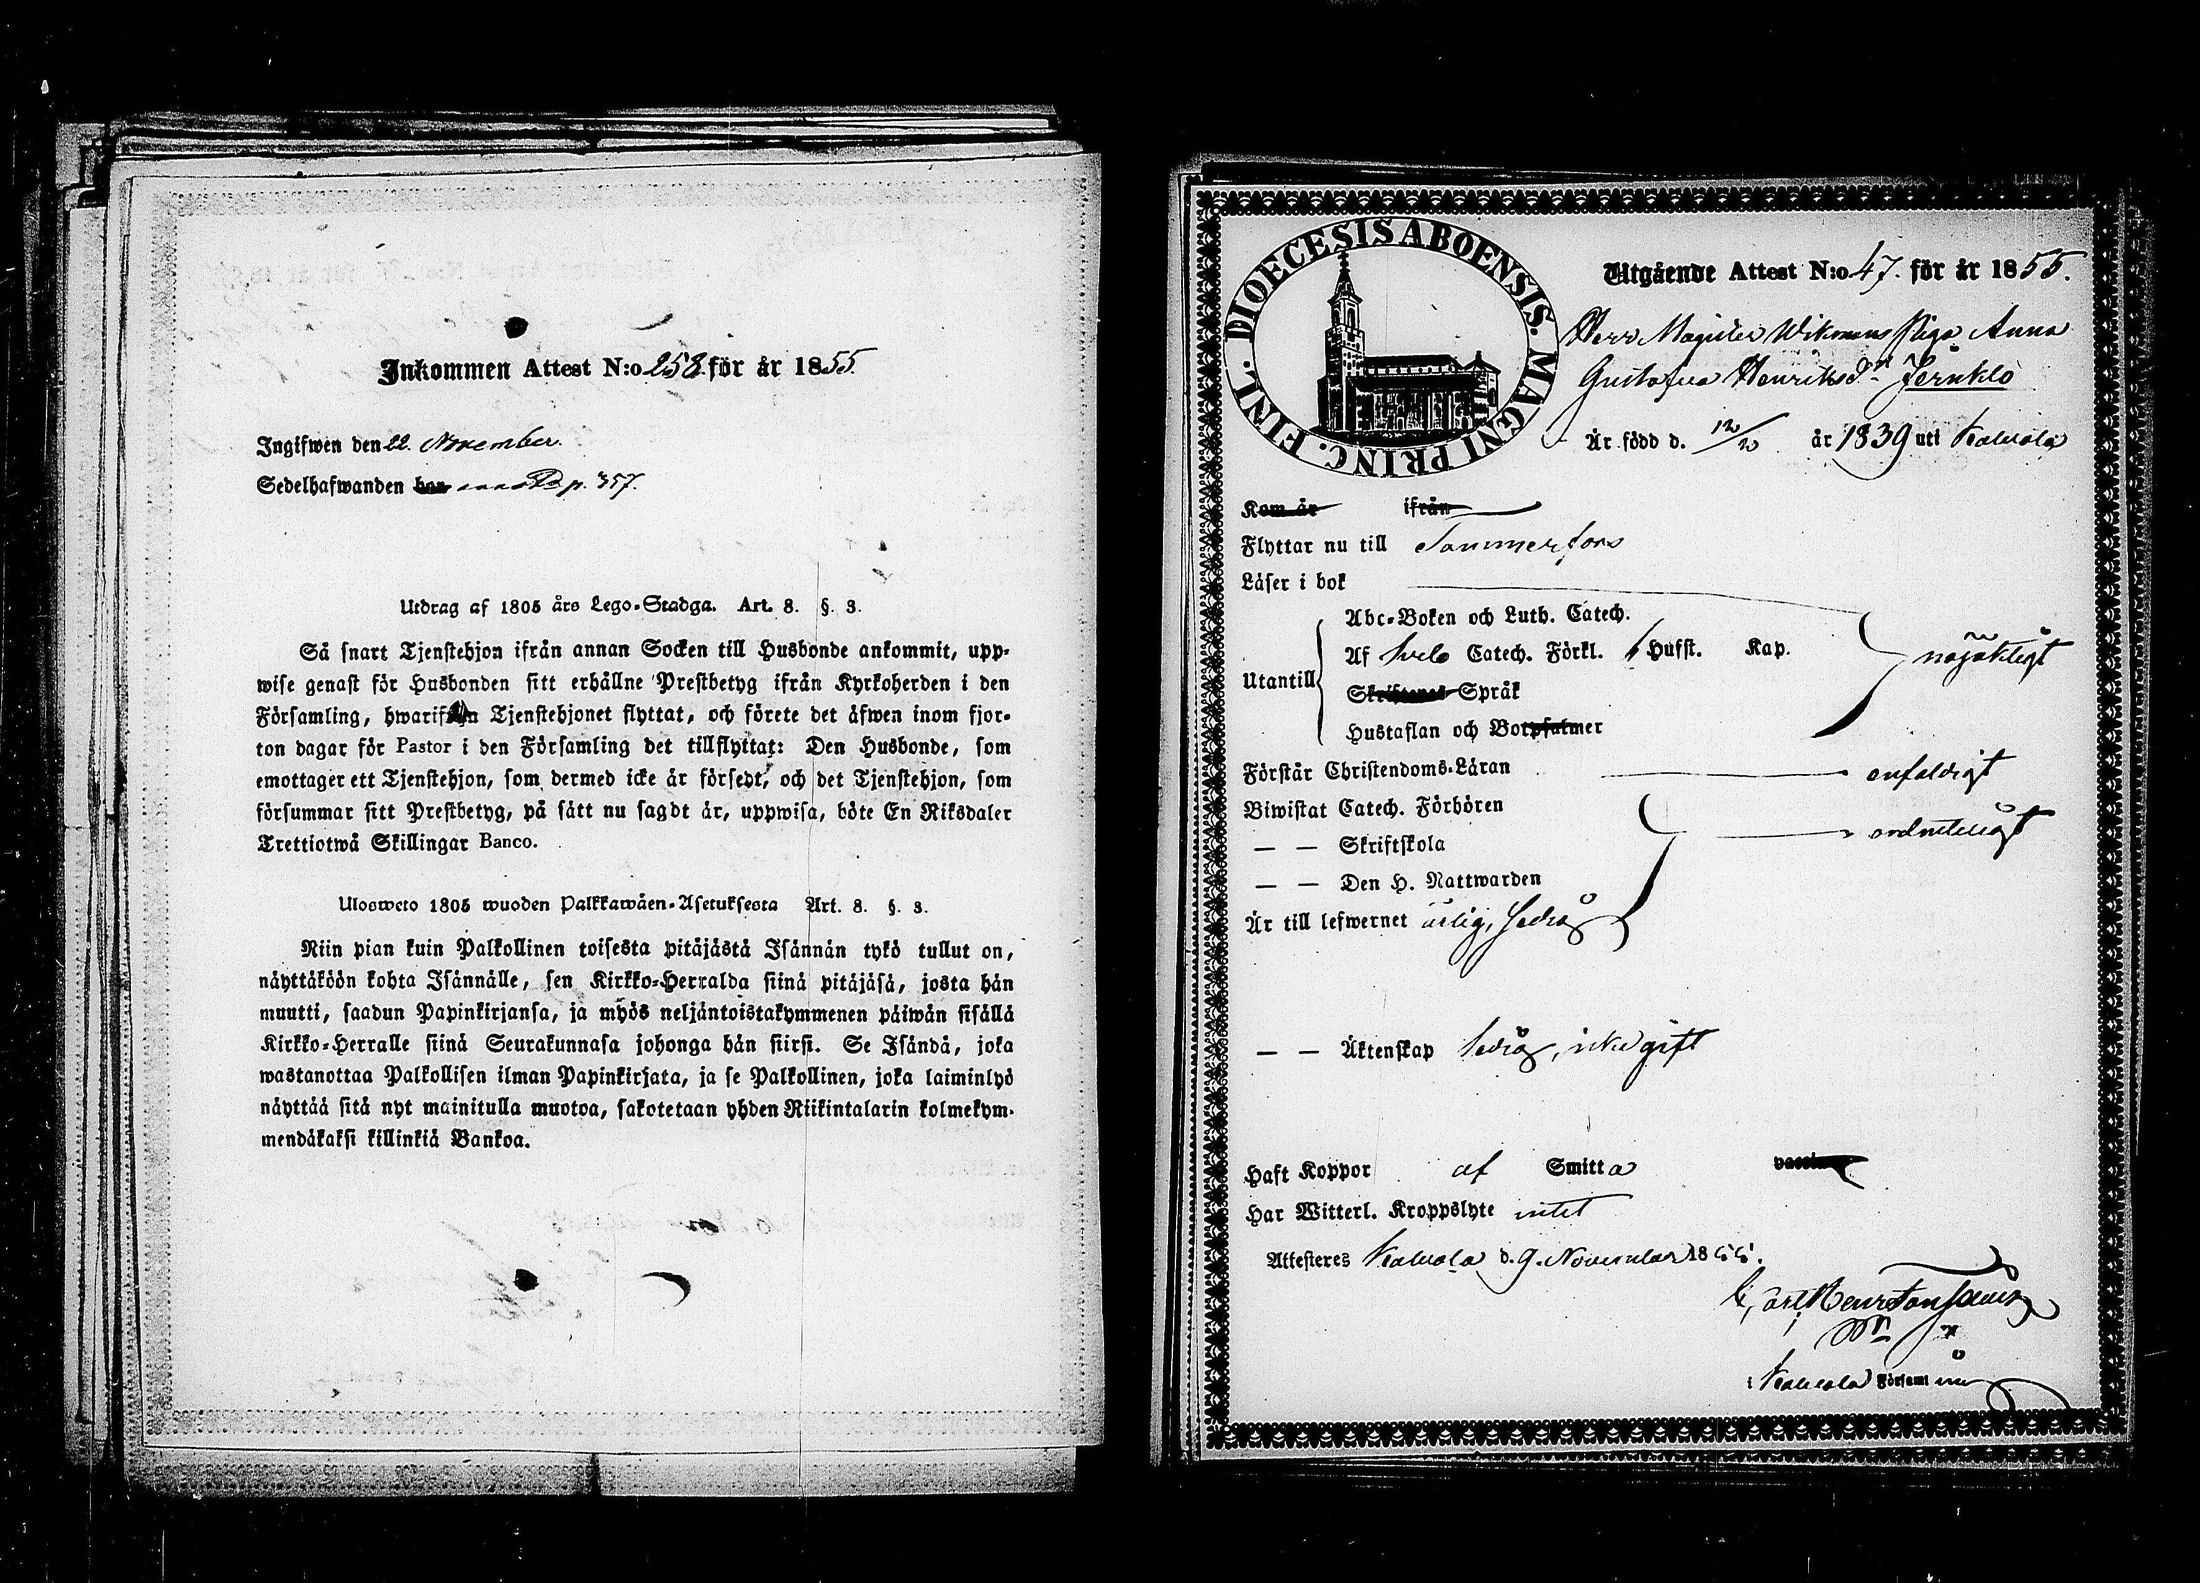 Inkommen Attest N:o 258 för år 1855.
Ingifwen den 22 November.
Sedelhafwanden har p. 357.
Utdrag af 1805 års Lego-Stadga. Art. 8. §. 3.
Så snart Tjenstehjon ifrån annan Socken till Husbonde ankommit, upp-
wise genast för Husbonden sitt erhållne Prestbetyg ifrån Kyrkoherden i den
Församling, hwarifrån Tjenstehjonet flyttat, och förete det äfwen inom fjor-
ton dagar för Pastor i den Församling det tillflyttat: Den Husbonde, som
emottager ett Tjenstehjon, som dermed icke är försedt, och det Tjenstehjon, som
försummar sitt Prestbetyg, på sätt nu sagdt är, uppwisa, böte En Riksdaler
Trettiotwå Skillingar Banco.
Ulosweto 1805 wuoden Palkkawäen-Asetuksesta Art. 8. §. 3.
Niin pian kuin Palkollinen toisesta pitäjästä Isännän tykö tullut on,
näyttäköön kohta Isännälle, sen Kirkko-Herralda siinä pitäjäsä, josta hän
muutti, saadun Papinkirjansa, ja myös neljäntoistakymmenen päiwän sisällä
Kirkko-Herralle siinä Seurakunnasa johonga hän siirsi. Se Isändä, joka
wastanottaa Palkollisen ilman Papinkirjata, ja se Palkollinen, joka laiminlyö
näyttää sitä nyt mainitulla muotoa, sakotetaan yhden Riikintalarin kolmekym-
mendäkaksi killinkiä Bankoa.
FINL. DIOECESIS ABOENSIS. MAGNI PRINC.
Utgående Attest N:o 47. för år 1855.
Herr Magister Wikmans Piga Anna
Gustafva Henriksdr Jernklo
Är född d. 12/2 år 1839 uti Kalvola
Kom år ifrån
Flyttar nu till Tammerfors
Läser i bok
Abc-Boken och Luth. Catech.
Af hela Catech. Förkl. 6 Hufst. Kap.
Utantill
Skriftenes Språk
Hustaflan och Botpsalmer
nöjaktigt
Förstår Christendoms-Läran enfaldigt
Biwistat Catech. Förhören
— — Skriftskola ordenteligt
— — Den H. Nattwarden
Är till lefwernet ärlig, sedig
— — Äktenskap ledig, icke gift
Haft Koppor af Smitta vaccin
Har Witterl. Kroppslyte intet
Attesteras Kalvola d. 9. November 1855.
Carl Henr
i Kalvola Församl